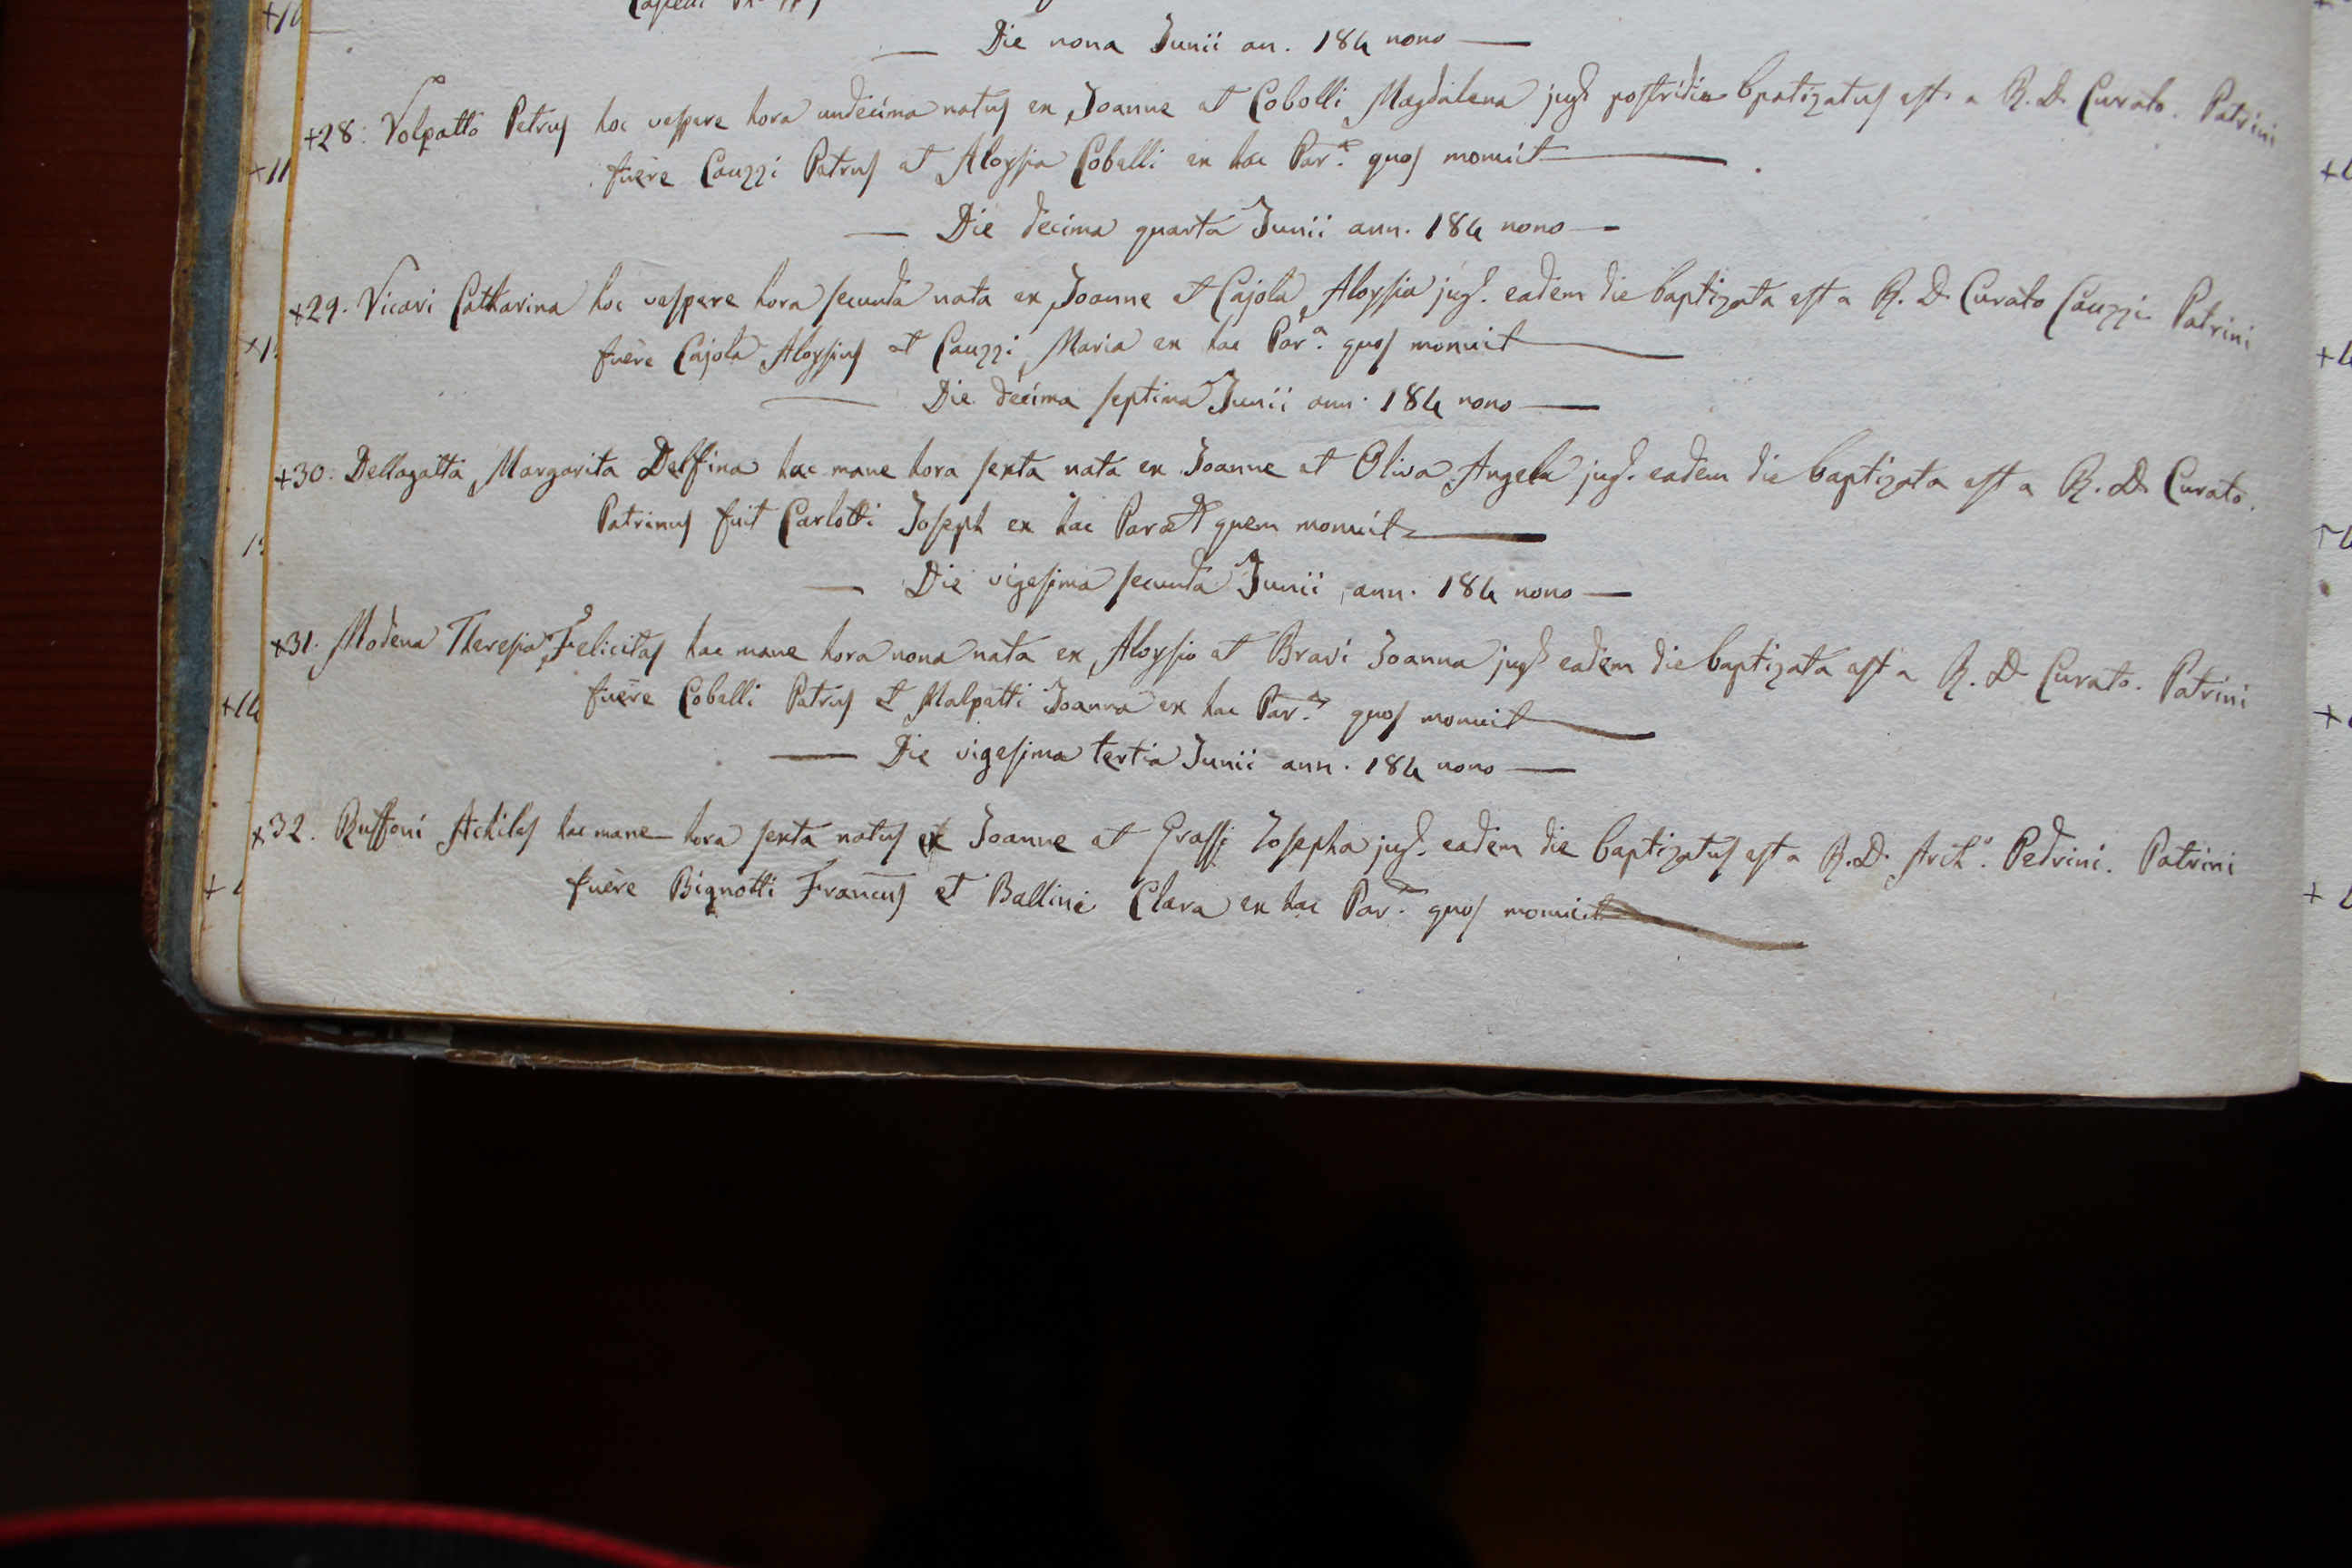 — Die nona Junii an. 184 nono —
+28. Volpatto Petrus hoc vespere hora undecima natus ex Joanne et Cobelli Magdalena jug. postridie bpatizatus est a R. D. Curato. Patrini
fuère Cauzzi Petrus et Aloysia Cobelli ex hac Par.a quos monuit —
— Die decima quarta Junii ann. 184 nono —
+29. Vicari Catharina hoc vespere hora secunda nata ex Joanne et Cajola Aloysia jug. eadem die baptizata est a R. D. Curato Cauzzi. Patrini
fuère Cajola Aloysius et Cauzzi Maria ex hac Par.a quos monuit —
— Die decima septima Junii ann. 184 nono —
+30. Dellagatta Margarita Delfina hac mane hora sexta nata ex Joanne et Oliva Angela jug. eadem die baptizata est a R. D. Curato.
Patrinus fuit Carlotti Joseph ex hac quem monuit —
— Die vigesima secunda Junii ann. 184 nono —
+31. Modena Theresia Felicitas hac mane hora nona nata ex Aloysio et Bravi Joanna jug. eadem die baptizata est a R. D. Curato. Patrini
fuère Cobelli Petrus et Malpetti Joanna ex hac Par.a quos monuit —
— Die vigesima tertia Junii ann. 184 nono —
+32. Ruffoni Achiles hac mane hora sexta natus ex Joanne et Grassi Josepha jug. eadem die baptizatus est a R. D. Arch.o Pedrini. Patrini
fuère Bignotti Francus et Ballini Clara ex hac Par.a quos monuit —